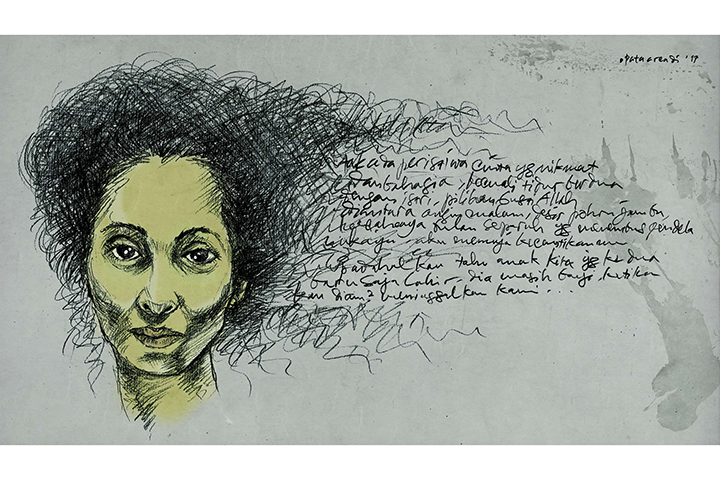 opataarendi '17
Tak ada peristiwa cinta yg nikmat
dan bahagia, kecuali tidur berdua
dengan istri, pilihan Gusti Allah
diantara angin malam, pohon jambu,
cahaya bulan separuh yg menembus jendela
aku memuja kecantikanmu
Padahal kau tahu anak kita yg kedua
baru saja lahir – dia masih bayi, ketika
kau diam² meninggalkan kami...